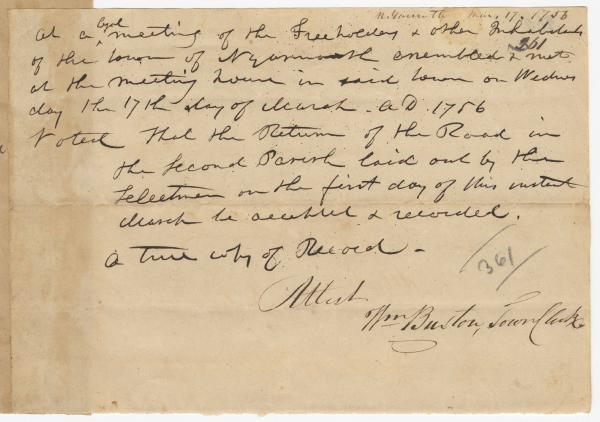 N. Yarmouth Mar. 17. 1756
At a Legal meeting of the Freeholders & other Inhabitants
361
of the town of N Yarmouth assembled & met
at the meeting house in said town on Wednes
day the 17th day of March - AD 1756
Voted That the Return of the Road in
the Second Parish laid out by the
Selectmen on the first day of this instant
March be accepted & recorded.
A true copy of Record -
361
Attest
Wm Buxton, Town Clerk